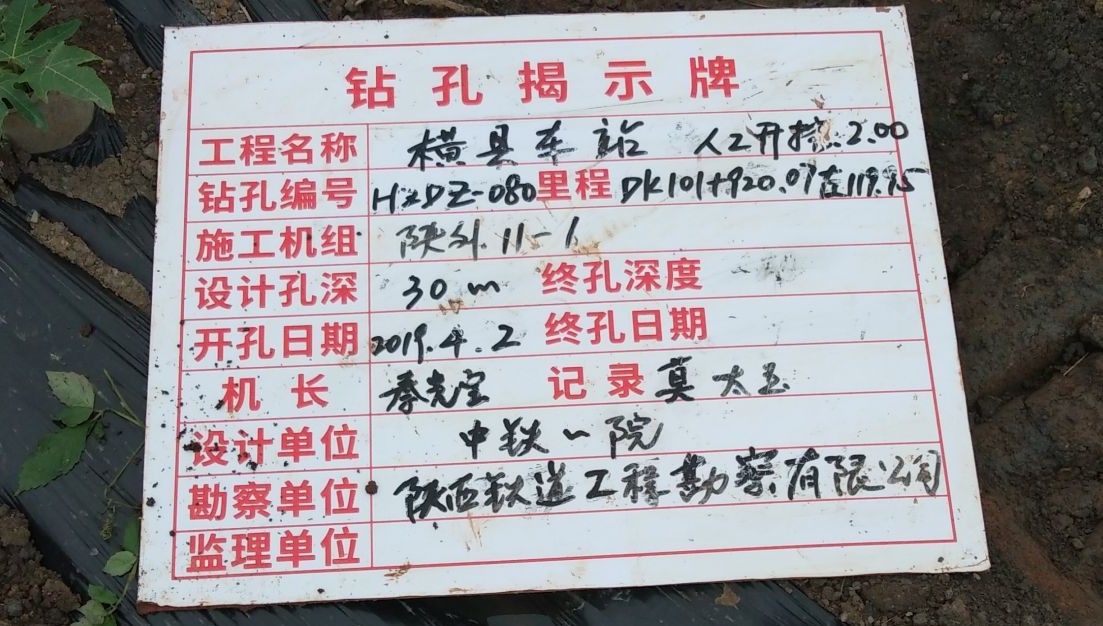 钻孔揭示牌
工程名称 横县车站 人工开挖:2.00
钻孔编号 HXDZ-080 里程 DK101+920.07左119.75
施工机组 陕外.11-1
设计孔深 30m 终孔深度
开孔日期 2019.4.2 终孔日期
机长 秦克宝 记录 莫太玉
设计单位 中铁一院
勘察单位 陕西铁道工程勘察有限公司
监理单位